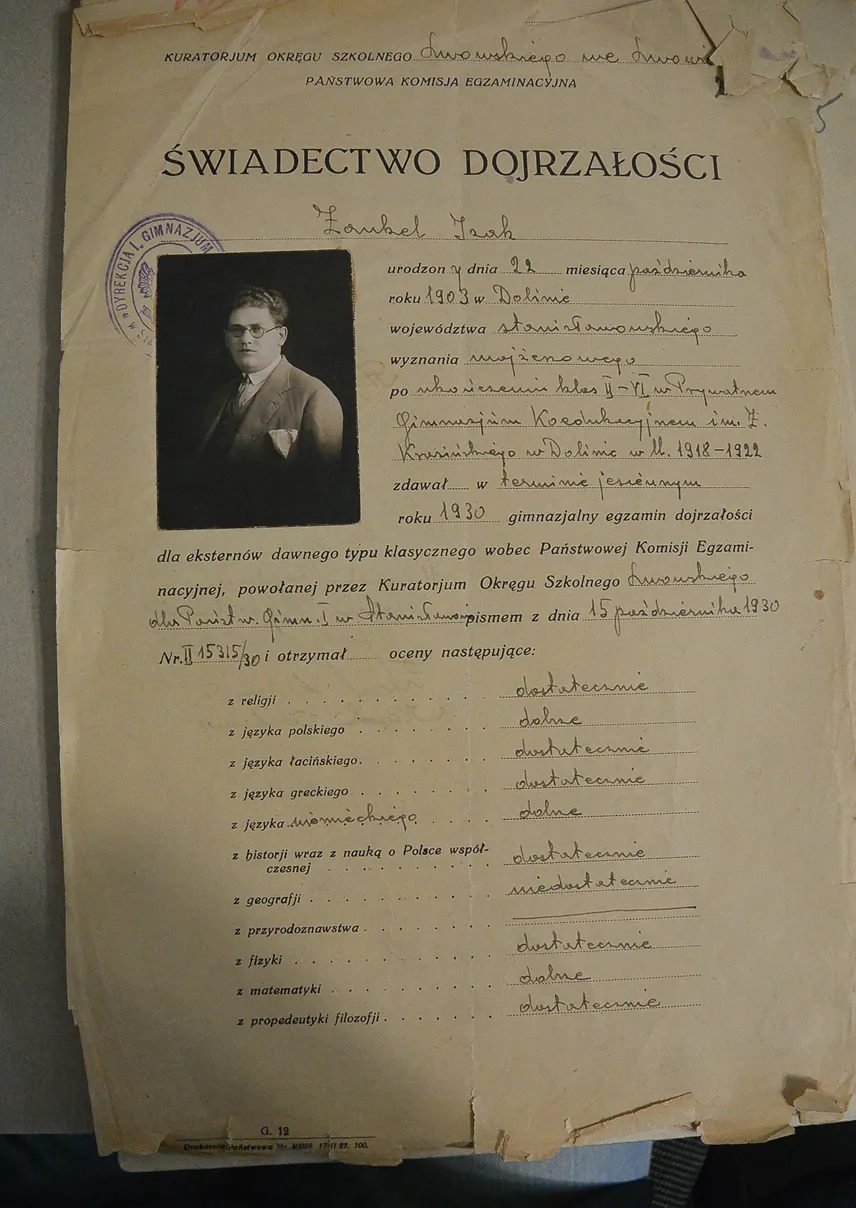 KURATORJUM OKRĘGU SZKOLNEGO Lwowskiego we Lwowie
PAŃSTWOWA KOMISJA EGZAMINACYJNA
5
ŚWIADECTWO DOJRZAŁOŚCI
Zankel Izak
DYREKCJA I. GIMNAZJUM
urodzony dnia 22 miesiąca października
roku 1903 w Dolinie
województwa stanisławowskiego
wyznania mojżeszowego
po ukończeniu klas II-VI w Prywatnem
Gimnazjum Koedukacyjnem im. Z.
Krasińskiego w Dolinie w ll. 1918-1922
zdawał w terminie jesiennym
roku 1930 gimnazjalny egzamin dojrzałości
dla eksternów dawnego typu klasycznego wobec Państwowej Komisji Egzami-
nacyjnej, powołanej przez Kuratorjum Okręgu Szkolnego Lwowskiego
dla Państw. Gimn. I w Stanisławowie pismem z dnia 15 października 1930
Nr. II 15315/30 i otrzymał oceny następujące:
z religji dostatecznie
z języka polskiego dobre
z języka łacińskiego dostatecznie
z języka greckiego dostatecznie
z języka niemieckiego dobre
z historji wraz z nauką o Polsce współ-
czesnej dostatecznie
z geografji niedostatecznie
z przyrodoznawstwa
z fizyki dostatecznie
z matematyki dobre
z propedeutyki filozofji dostatecznie
G. 12
Drukarnia Państwowa Nr. 40099 17-II 28. 100.